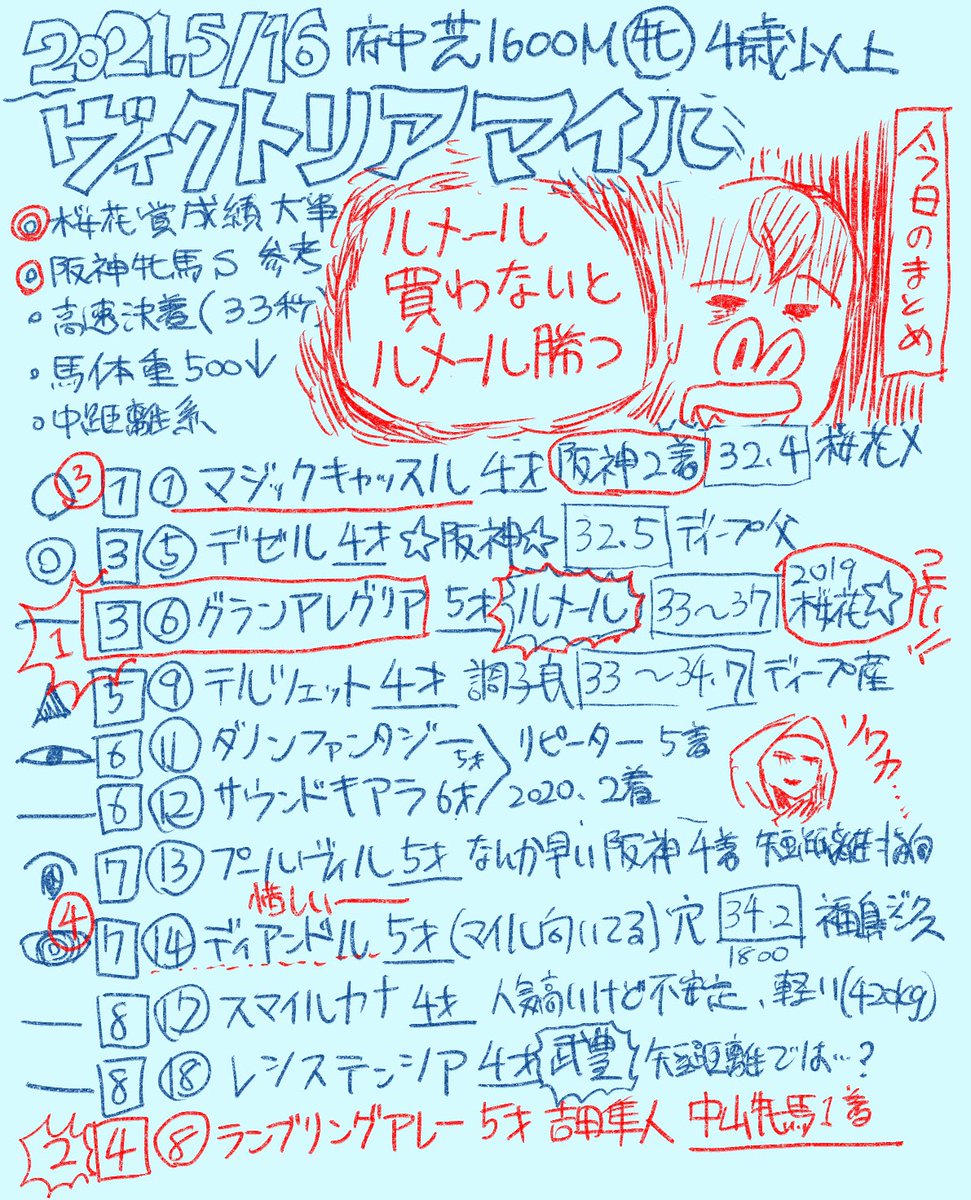 2021.5/16 府中芝1600M 牝 4歳以上
ヴィクトリアマイル
今日のまとめ
◎桜花賞成績大事
◎阪神牝馬S 参考
。高速決着(33秒)
。馬体重500↓
。中距離系
ルメール
買わないと
ルメール勝つ
○ 3 1 ① マジックキャッスル 4才 阪神2着 32.4 桜花メ
◎ 3 ⑤ デゼル 4才 ☆阪神☆ 32.5 ディープ父
つよい!!
1 3 ⑥ グランアレグリア 5才 ルメール 33〜37 2019 桜花☆
▲ 5 ⑨ テルツェット 4才 調子良 33〜34.7 ディープ産
6 ⑪ ダノンファンタジー 5才 リピーター 5着
ソウカ...
6 ⑫ サウンドキアラ 6才 2020.2着
7 ⑬ プールヴィル 5才 なんか早い 阪神4着 短距離指向
惜しいー
4 7 ⑭ ディアンドル 5才 (マイル向いてる) 穴 34.2 1800 福島
8 ⑰ スマイルカナ 4才 人気高いけど不安定、軽い(420kg)
8 ⑱ レシステンシア 4才 武豊 短距離では…?
2 4 ⑧ ランブリングアレー 5才 吉田隼人 中山牝馬1着